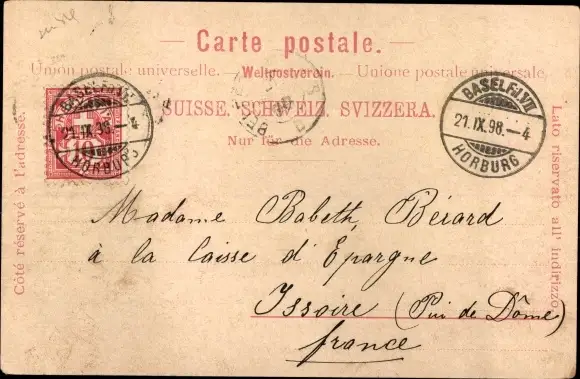 Carte postale.
Union postale universelle. — Weltpostverein. — Unione postale universale.
SUISSE. SCHWEIZ. SVIZZERA.
Nur für die Adresse.
Côté réservé à l'adresse.
Lato riservato all' indirizzo.
21.IX.98.–4
HORBURG
10
BASEL FIL. VII
21.IX.98.–4
HORBURG
Madame Babeth Bérard
à la Caisse d'Épargne
Issoire (Pui de Dôme)
france